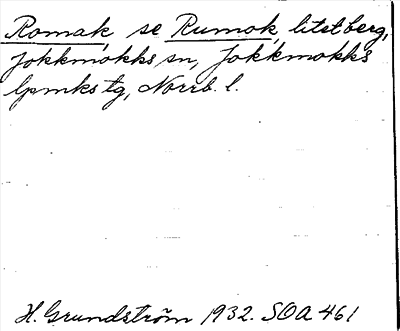 Romak, se Rumok, litet berg,
Jokkmokks sn, Jokkmokks
lpmks tg, Norrb. l.
H. Grundström 1932. SOA 461